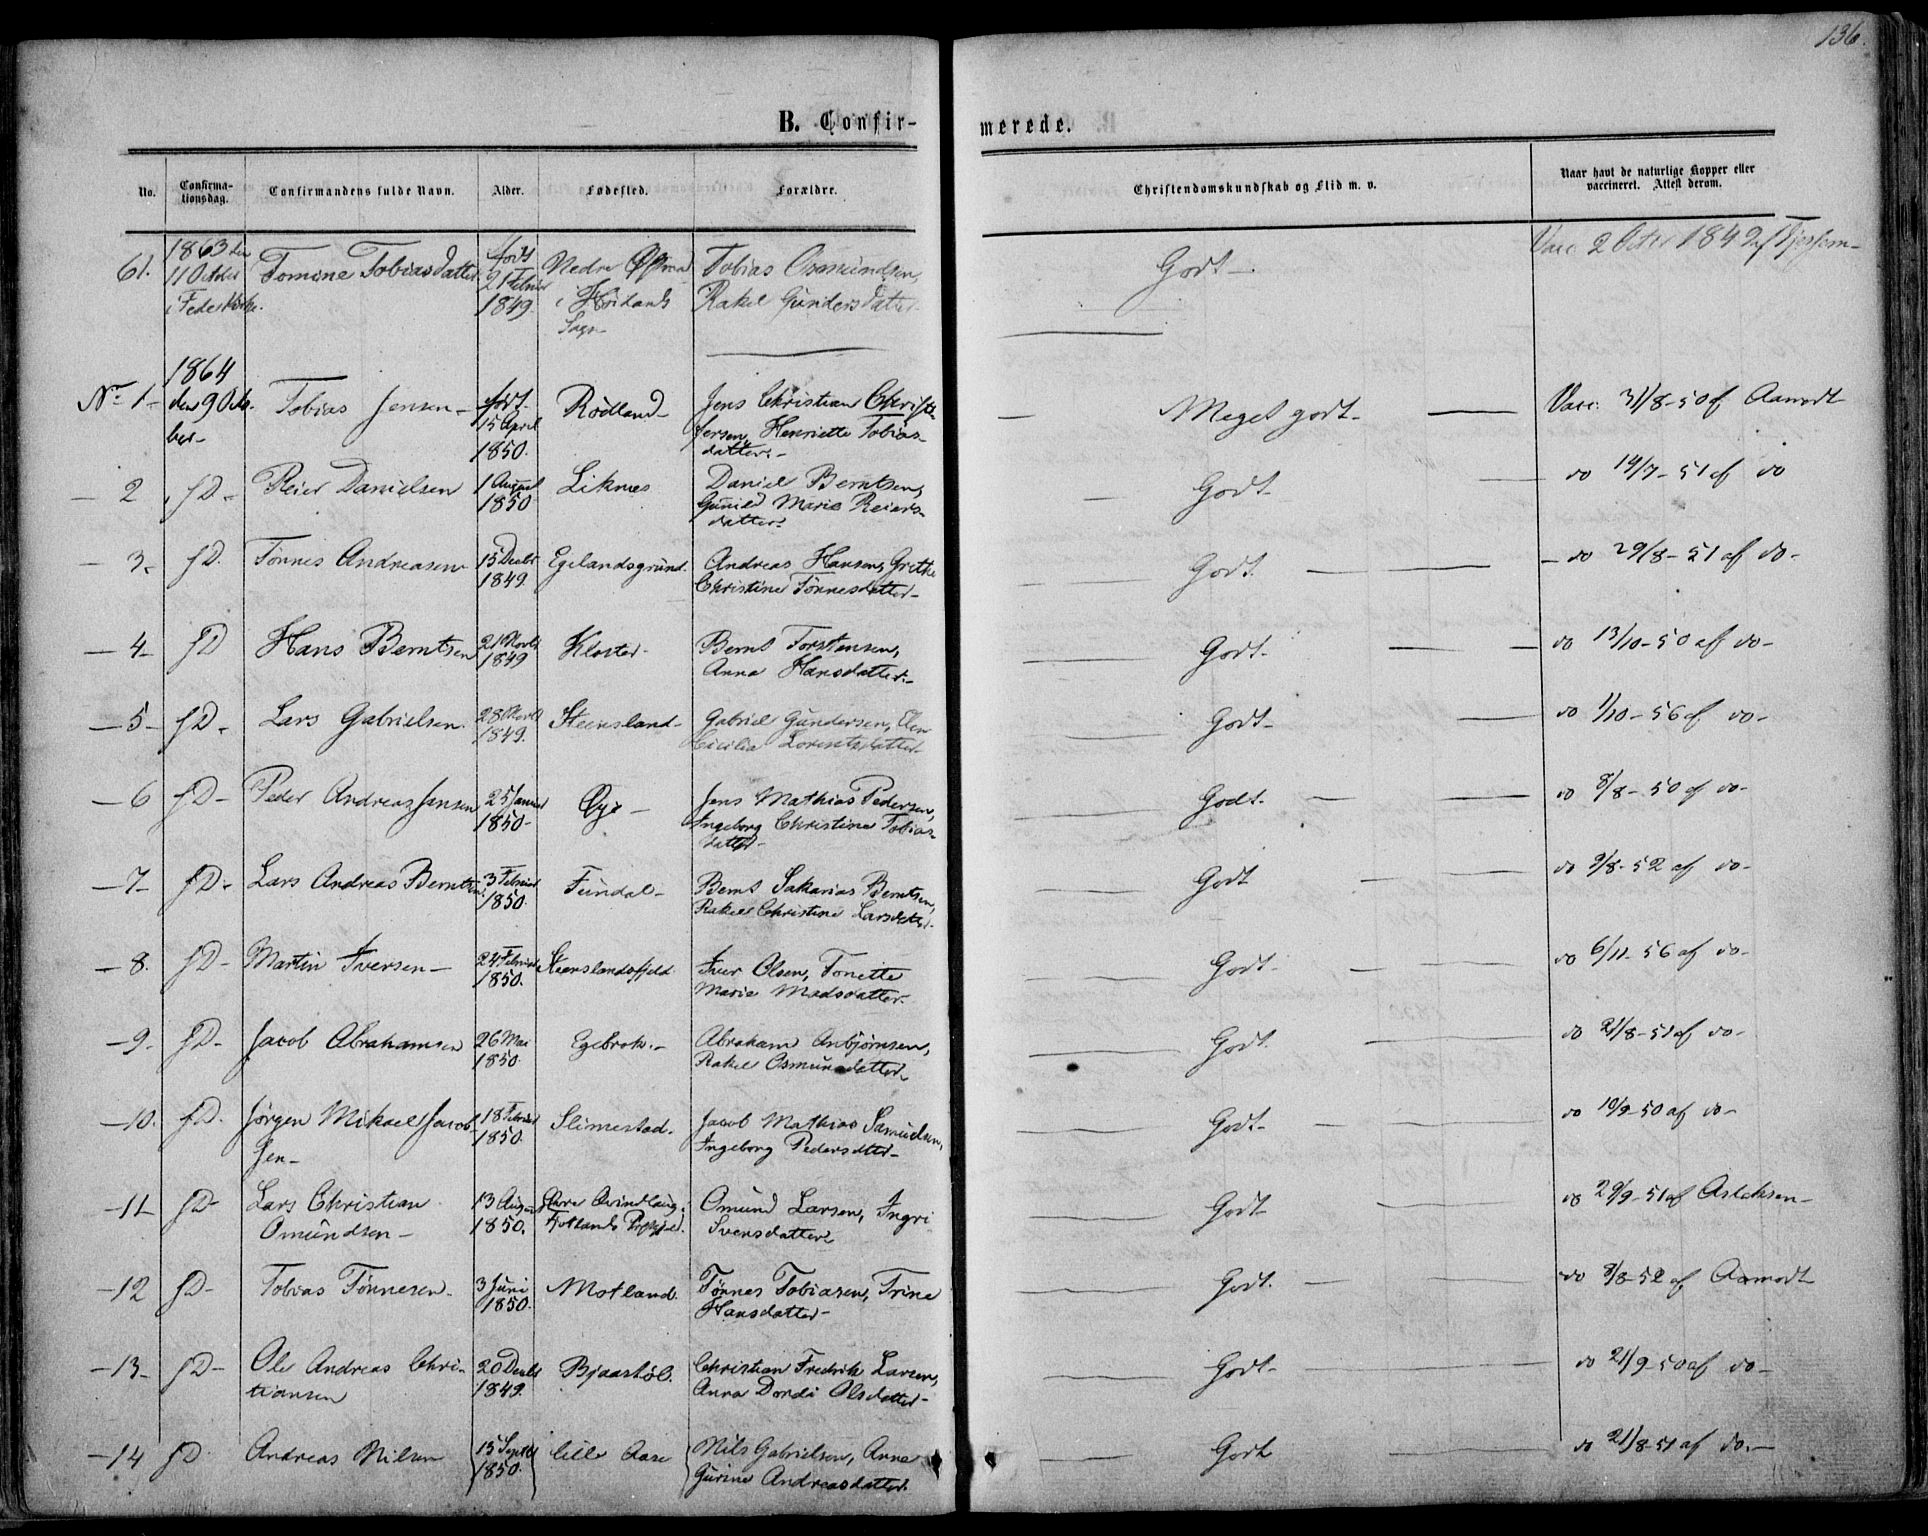 136.
B. Confir- merede.
No. Confirmationsdag. Confirmandens fulde Navn. Alder. Fødested. Forældre. Christendomskundskab og Flid m. v. Naar havt de naturlige Kopper eller vaccineret. Attest derom.
61. 1863 den 11 October i Fede Kirke. Tomine Tobiasdatter født 21 Februar 1849. Nedre i Sogn Tobias Osmundsen, Rakel Gundersdatter. Godt - Vacc. 2 Octbr 1849 af
1864
No 1- den 9 Octo- ber- Tobias Jensen- født 15 April 1850. Rødland- Jens Christian Jensen, Henriette Tobias- datter.- Meget godt- Vacc: 31/8-50 af Aamodt
- 2 sD- Reier Danielsen 1 August 1850 Liknes Daniel Berntsen, Gunild Marie Reiers- datter. Godt- do 14/7-51 af do
- 3- sD. Tønnes Andreasen 15 Decbr 1849. Egelandsgrund. Andreas Hansen, Grethe Christine Tønnesdatter- Godt. - do 29/8-51 af do-
- 4- sD Hans Berntsen 21 Novbr 1849 Kloster- Bernt Torstensen, Anna Hansdatter.- Godt- do 13/10-50 af do-
- 5- sD- Lars Gabrielsen. 28 Novbr 1849. Steensland- Gabriel Gundersen, Elen Lorentsdatter- Godt- do 1/10-56 af do-
- 6 sD- Peder Andreas Jensen 25 Januar 1850- Øye- Jens Mathias Pedersen, Ingeborg Christine Tobias- datter- Godt. do 8/8-50 af do-
- 7- sD- Lars Andreas Berntsen 3 Februar 1850. Fundal- Bernt Sakarias Berntsen, Rakel Christine Larsdatter. Godt do 9/8-52 af do-
- 8. sD- Martin Iversen- 24 Februar 1850. Steenslandsfjeld. Iver Olsen, Tonette Marie Madsdatter. Godt- do 6/11-56 af do-
- 9- sD- Jacob Abrahamsen 26 Mai 1850. Egebrok.- Abraham Anbjørnsen, Rakel Osmundsdatter. Godt. do 21/8-51 af do-
-10. sD. Jørgen Mikael Jacob- sen- 18 Februar 1850. Slimestad. Jacob Mathias Samuelsen, Ingeborg Pedersdtter- Godt- do 10/9-50 af do-
-11- sD- Lars Christian Omundsen- 13 August 1850. Omund Larsen, Ingri Svensdatter Godt do 29/9-51 af Aslaksen-
-12 sD- Tobias Tønnesen- 3 Juni 1850. Motland. Tønnes Tobiasen, Trine Hansdatter- Godt. do 8/8-52 af Aamodt
-13- sD- Ole Andreas Chri- stiansen 20 Decbr 1849. Bjaastøl. Christian Fredrik Larsen, Anna Dordi Olsdatter- Godt- do 21/9-50 af do-
-14 sD Andreas Nilsen 15 Septbr 1850. lille Aase Nils Gabrielsen, Anne Gurine Andreasdatter. Godt do 21/8-51 af do.-